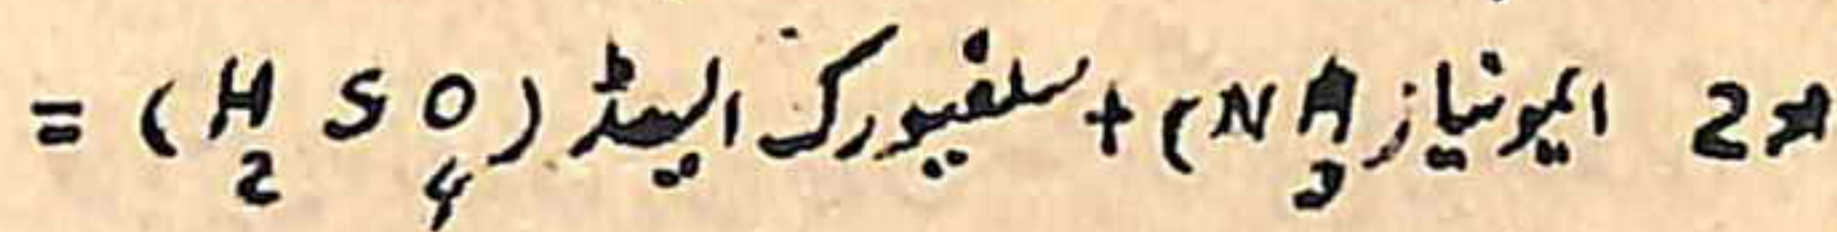 2 ایمونیاز (NH3) + سلفیورک ایسڈ (H2SO4) =